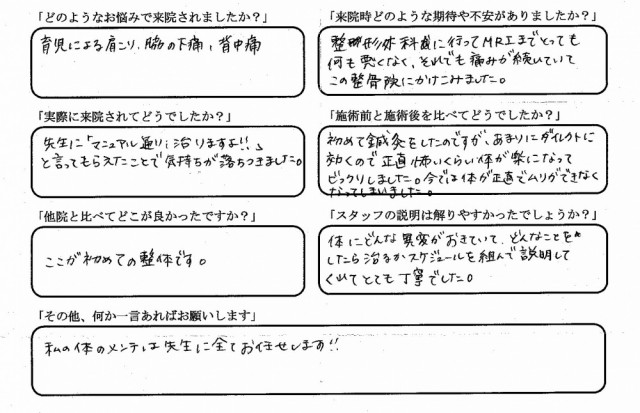 「どのようなお悩みで来院されましたか？」
育児による肩こり、脇の下痛、背中痛
「来院時どのような期待や不安がありましたか？」
整形外科に行ってMRIまでとっても
何も悪くなく、それでも痛みが続いていて
この整骨院にかけこみました。
「実際に来院されてどうでしたか？」
先生に「マニュアル通りに治りますよ!!」
と言ってもらえたことで気持ちが落ちつきました。
「施術前と施術後を比べてどうでしたか？」
初めて鍼灸をしたのですが、あまりにダイレクトに
効くので正直怖いくらい体が楽になって
ビックリしました。今では体が正直でムリができなく
なってしまいました。
「他院と比べてどこが良かったですか？」
ここが初めての整体です。
「スタッフの説明は解りやすかったでしょうか？」
体にどんな異変がおきていて、どんなことを
したら治るかスケジュールを組んで説明して
くれてとても丁寧でした。
「その他、何か一言あればお願いします」
私の体のメンテは先生に全てお任せします!!